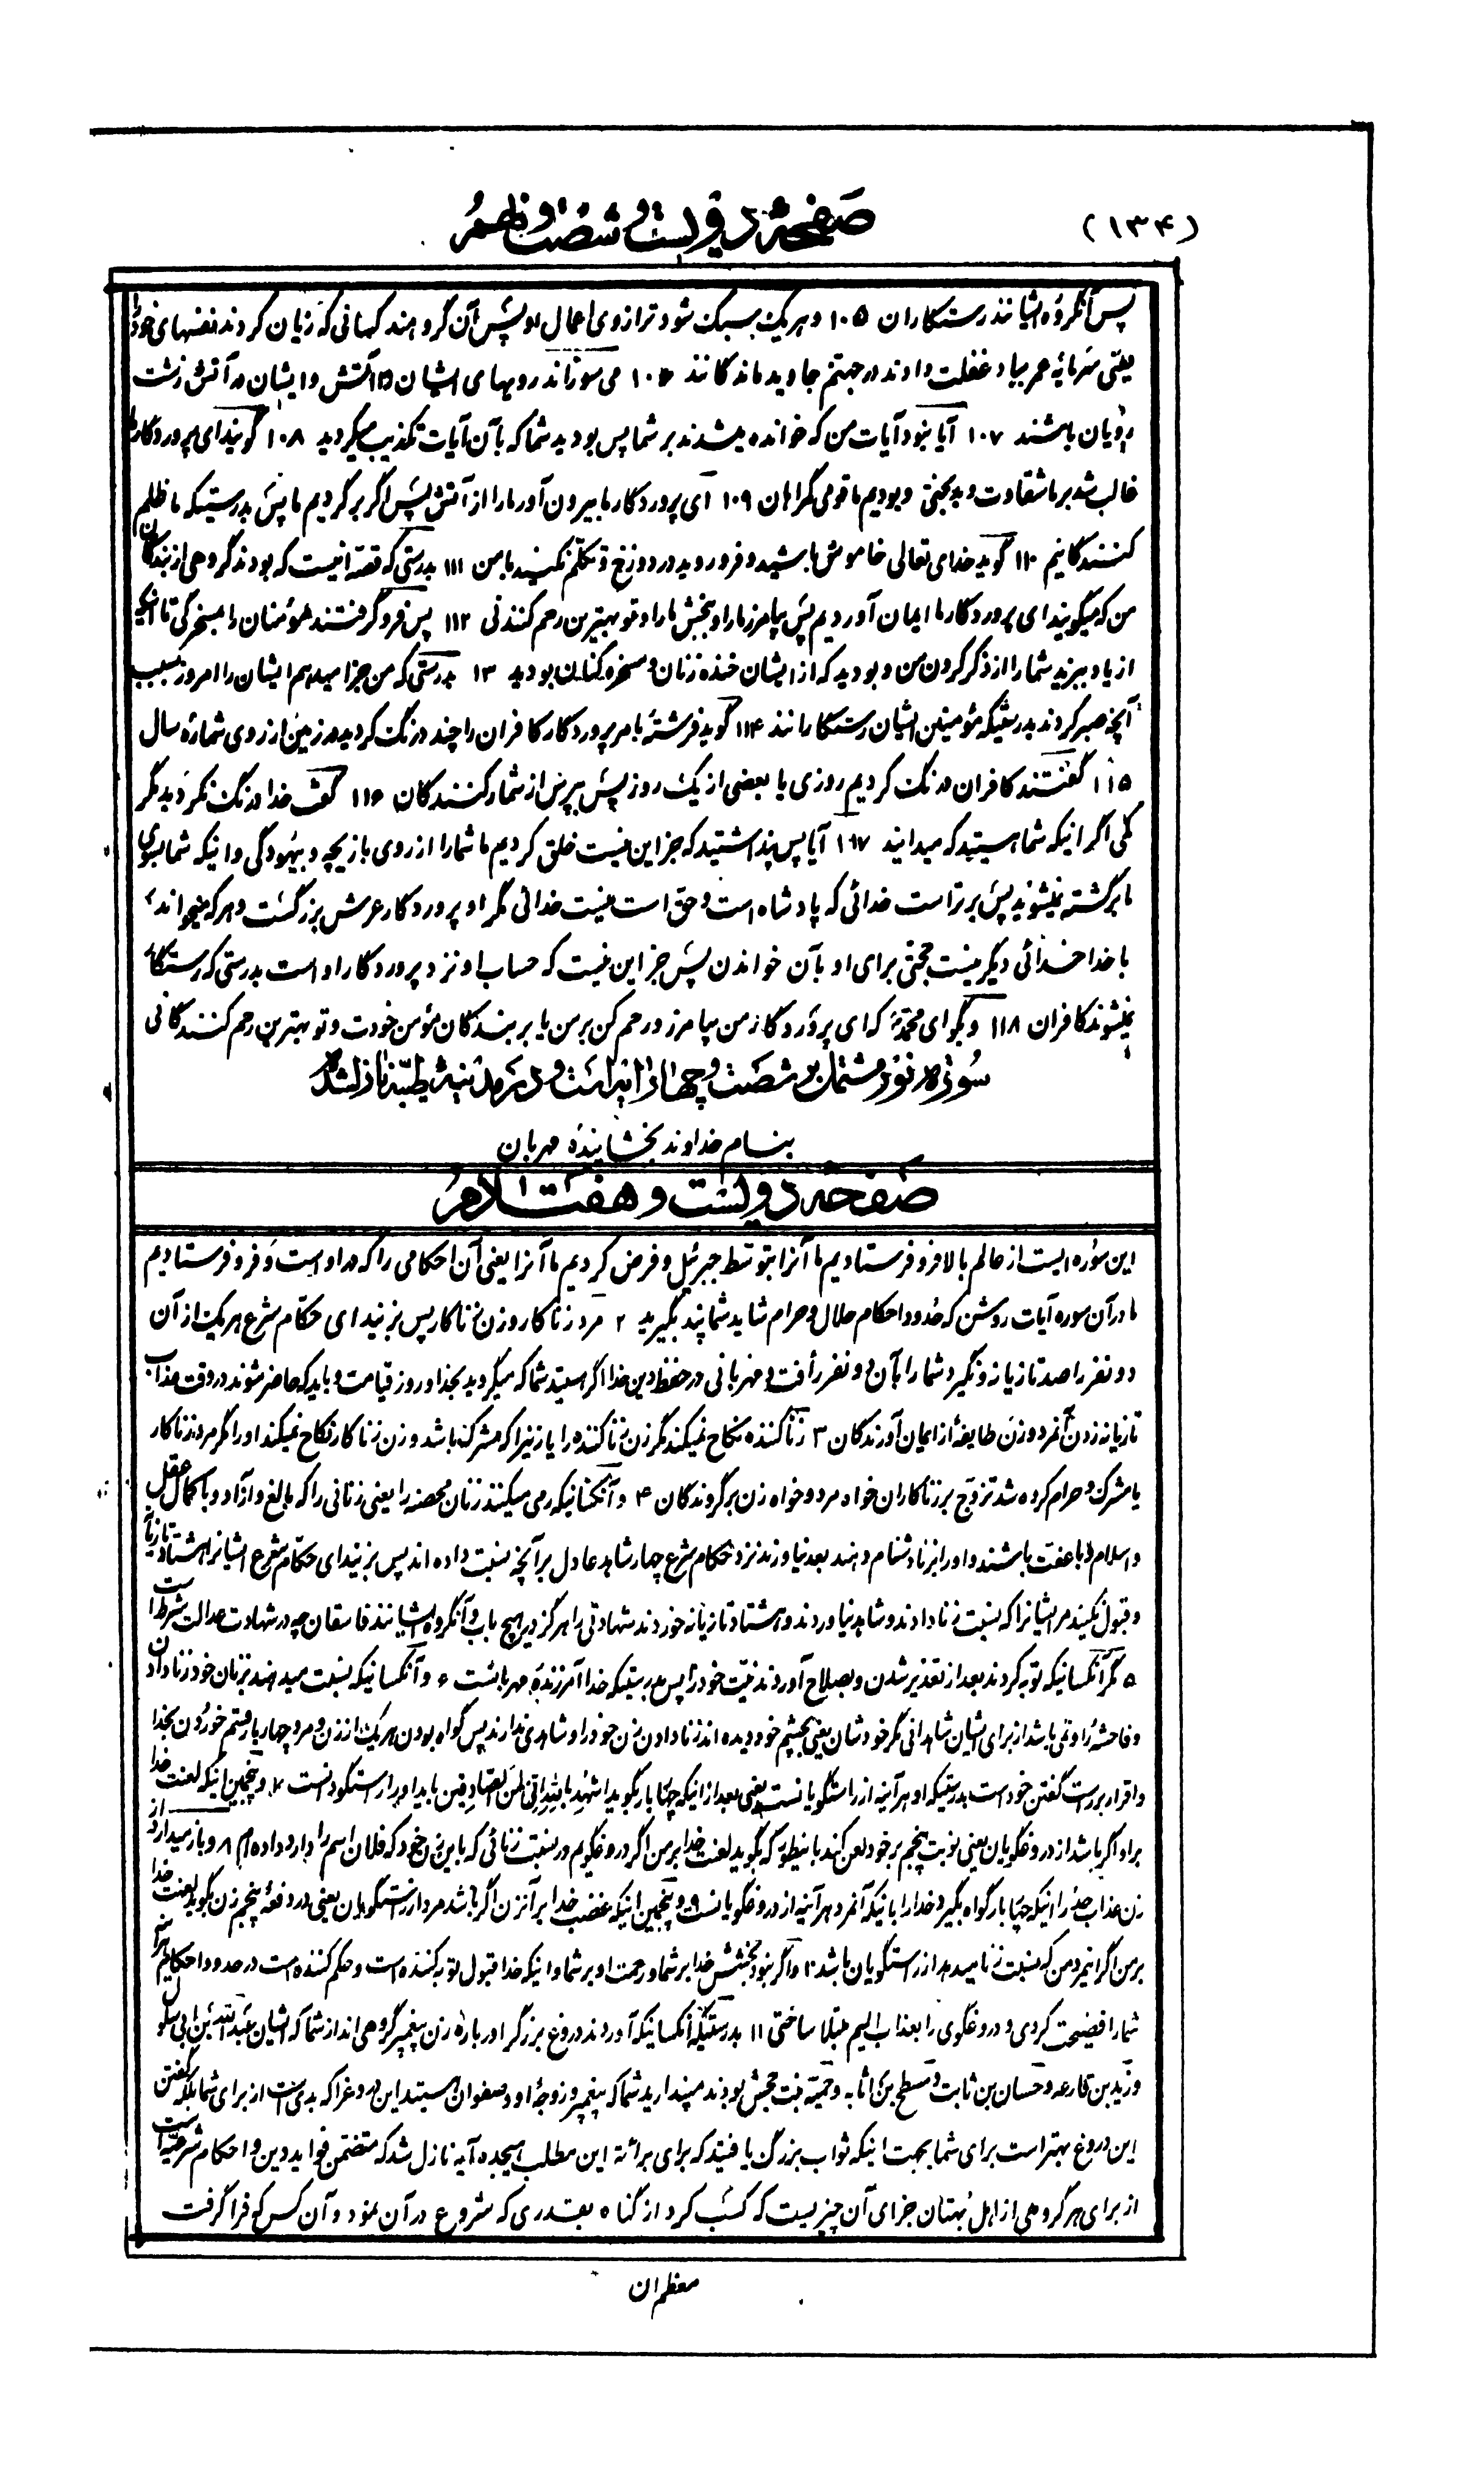 (۱۳۴)
صفحهٔ دویست و شصت و نهم
پس آنگروه ایشانند رستکاران ۱۰۵ و هر یک سبک شود ترازوی اعمال او پس آن گروهند کسانی که زیان کردند نفسهای خود را
یعنی سرمایه عمر بباد غفلت دادند در جهنم جاوید ماندکانند ۱۰۶ می سوزاند رویهای ایشان را آتش و ایشان در آتش زشت
رویان باشند ۱۰۷ آیا نبود آیات من که خوانده میشدند بر شما پس بودید شما که بآن آیات تکذیب میکردید ۱۰۸ گویند ای پروردکار ما
غالب شد بر ما شقاوت و بدبختی و بودیم ما قومی گمراهان ۱۰۹ ای پروردکار ما بیرون آور ما را از آتش پس اگر برگردیم ما پس بدرستیکه ما ظلم
کنندکانیم ۱۱۰ گوید خدای تعالی خاموش باشید و فرو روید در دوزخ و تکلم نکنید با من ۱۱۱ بدرستی که قصه اینست که بودند گروهی از بندکان
من که میگویند ای پروردکار ما ایمان آوردیم پس بیامرز ما را و ببخش ما را و تو بهترین رحم کنندنی ۱۱۲ پس فرو گرفتند مؤمنان را بمسخرگی تا اینکه
از یاد ببرید شما را از ذکر کردن من و بودید که از ایشان خنده زنان و مسخره کنان بودید ۱۳ بدرستی که من جزا میدهم ایشان را امروز بسبب
آنچه صبر کردند بدرستیکه مؤمنین ایشان رستکارانند ۱۱۴ گوید فرشتهٔ بامر پروردکار کافران را چند درنگ کردید در زمین از روی شمارهٔ سال
۱۱۵ گفتند کافران درنگ کردیم روزی یا بعضی از یک روز پس بپرس از شمار کنندکان ۱۱۶ گفت خدا درنگ نکردید مگر
کمی اگر اینکه شما هستید که میدانید ۱۱۷ آیا پس پنداشتید که جز این نیست خلق کردیم ما شما را از روی بازیچه و بیهودگی و اینکه شما بسوی
ما برگشته نمیشوید پس برتر است خدائی که پادشاه است و حق است نیست خدائی مگر او پروردکار عرش بزرگست و هر که میخواند
با خدا خدائی دیگر نیست حجتی برای او بآن خواندن پس جز این نیست که حساب او نزد پروردکار او است بدرستی که رستکار
نمیشوند کافران ۱۱۸ و بگو ای محمد که ای پروردکار من بیامرز و رحم کن بر من یا بر بندکان مؤمن خودت و تو بهترین رحم کنندکانی
سوره نور مشتمل بر شصت و چهار آیه است و در مدینه طیبه نازل شده
بنام خداوند بخشاینده مهربان
صفحهٔ دویست و هفتادم
این سوره ایست از عالم بالا فرو فرستادیم ما آنرا بتوسط جبرئیل و فرض کردیم ما آنرا یعنی آن احکامی را که در او است و فرو فرستادیم
ما در آن سوره آیات روشن که حدود و احکام حلال و حرام شاید شما پند بگیرید ۲ مرد زناکار و زن زناکار پس بزنید ای حکام شرع هر یک از آن
دو نفر را صد تازیانه و نگیرد شما را بآن دو نفر رأفت و مهربانی در حفظ دین خدا اگر هستید شما که میگروید بخدا و روز قیامت و باید که حاضر شوند در وقت عذاب
تازیانه زدن آنمرد و زن طایفهٔ از ایمان آورندکان ۳ زنا کننده نکاح نمیکند مگر زن زنا کننده را یا زنیرا که مشرک باشد و زن زناکار نکاح نمیکند او را مگر مرد زناکار
یا مشرک و حرام کرده شد تزوج بر زناکاران خواه مرد و خواه زن بر گروندکان ۴ و آنکسانیکه رمی میکنند زنان محصنه را یعنی زنانی را که بالغ و آزاد و با کمال عقل
و اسلام و با عفت باشند و او را بزنا دشنام دهند بعد نیاورند نزد حکام شرع چهار شاهد عادل بر آنچه نسبت داده اند پس بزنید ای حکام شرع ایشانرا هشتاد تازیانه
و قبول نکنید مر ایشانرا که نسبت زنا دادند و شاهد نیاوردند و هشتاد تازیانه خوردند شهادتی را هرگز در هیچ باب و آنگروه ایشانند فاسقان چه در شهادت عدالت شرط است
۵ مگر آنکسانیکه توبه کردند بعد از تعذیر شدن و بصلاح آوردند نیت خود را پس بدرستیکه خدا آمرزندهٔ مهربانست ۶ و آنکسانیکه نسبت میدهند بزنان خود زنا دادن
و فاحشه را و نمی باشد از برای ایشان شاهدانی مگر خودشان یعنی بچشم خود دیده اند زنا دادن زن خود را و شاهدی ندارند پس گواه بودن هر یک از زن و مرد چهار بار قسم خوردن بخدا
و اقرار بر راست گفتن خود است بدرستیکه او هر آینه از راستگویانست یعنی بعد از اینکه چهار بار بگوید اشهد بالله انی لمن الصادقین باید او را راستگو دانست ۷ و پنجمین اینکه لعنت خدا
بر او اگر باشد از دروغگویان یعنی نوبت پنجم بر خود لعن کند باینطور که بگوید لعنت خدا بر من اگر دروغگویم در نسبت زنائی که باین زن خود که فلان اسم را دارد داده ام ۸ و باز میدارد از
زن عذاب حد را اینکه چهار بار گواه بگیرد خدا را باینکه آنمرد هر آینه از دروغگویانست ۹ و پنجمین اینکه غضب خدا بر آنزن اگر باشد مرد از راستگویان یعنی در دفعهٔ پنجم زن بگوید لعنت خدا
بر من اگر اینمرد من که نسبت زنا میدهد از راستگویان باشد ۱۰ و اگر نبود بخشش خدا بر شما و رحمت او بر شما و اینکه خدا قبول توبه کننده است و حکم کننده است در حدود و احکام هر آینه
شما را فضیحت کردی و دروغگوی را بعذاب الیم مبتلا ساختی ۱۱ بدرستیکه آنکسانیکه آوردند دروغ بزرگ را در باره زن پیغمبر گروهی اند از شما که ایشان عبدالله بن ابی سلول
و زید بن قارعه و حسان بن ثابت و مسطح بن اثابه و حمیته بنت جحش بودند مپندارید شما که پیغمبر و زوجهٔ او و صفوان هستید این دروغ را که بدی است از برای شما بلکه گفتن
این دروغ بهتر است برای شما بجهت اینکه ثواب بزرگ یافتید که برای برائت این مطلب هیجده آیه نازل شد که متضمن فواید دین و احکام شرعیه است
از برای هر گروهی از اهل بهتان جزای آن چیزیست که کسب کرد از گناه بقدری که شروع در آن نمود و آن کس که فرا گرفت
معظم آن